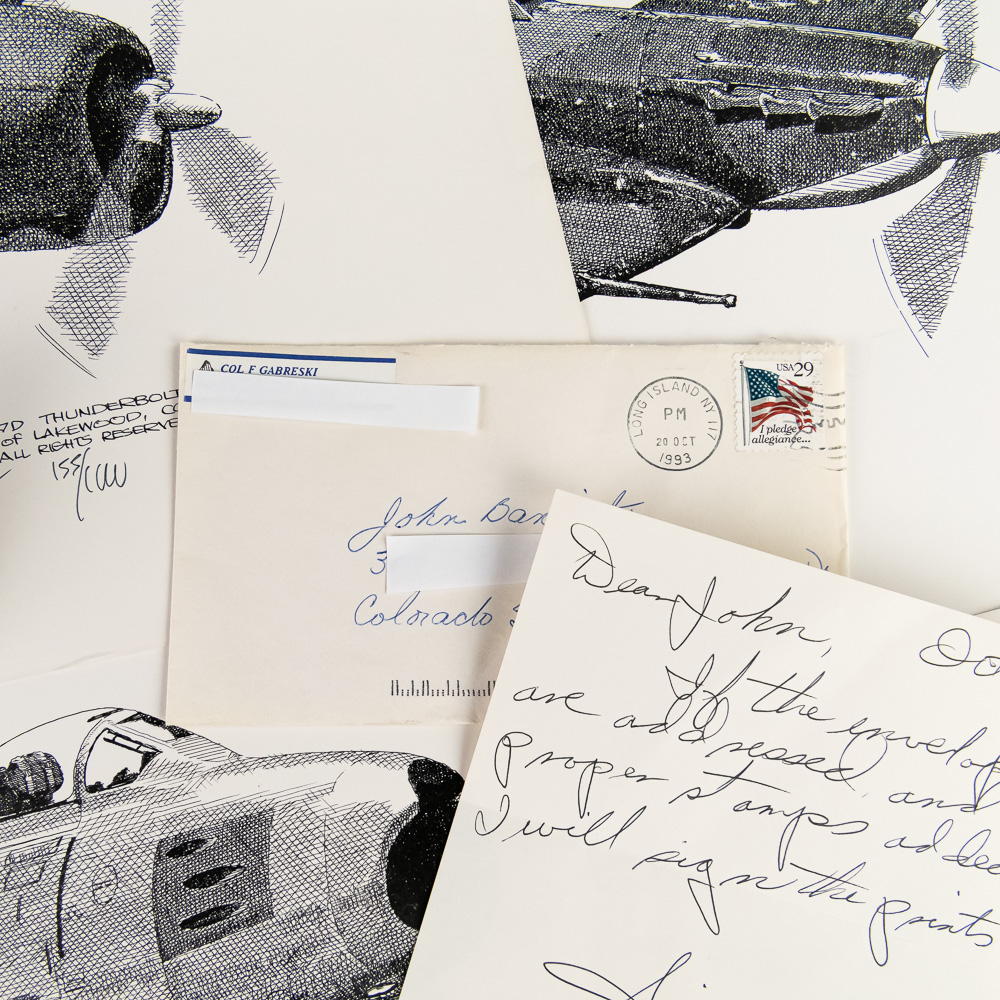 COL F GABRESKI
7D THUNDERBOLT
OF LAKEWOOD, CO
ALL RIGHTS RESERVE
155/1000
LONG ISLAND NY 117
PM
20 OCT
1993
USA 29
I pledge
allegiance...
John Ban
3
Colorado S
Dear John,
Oc
If the envelop
are addressed, and
proper stamps added
I will sign the prints